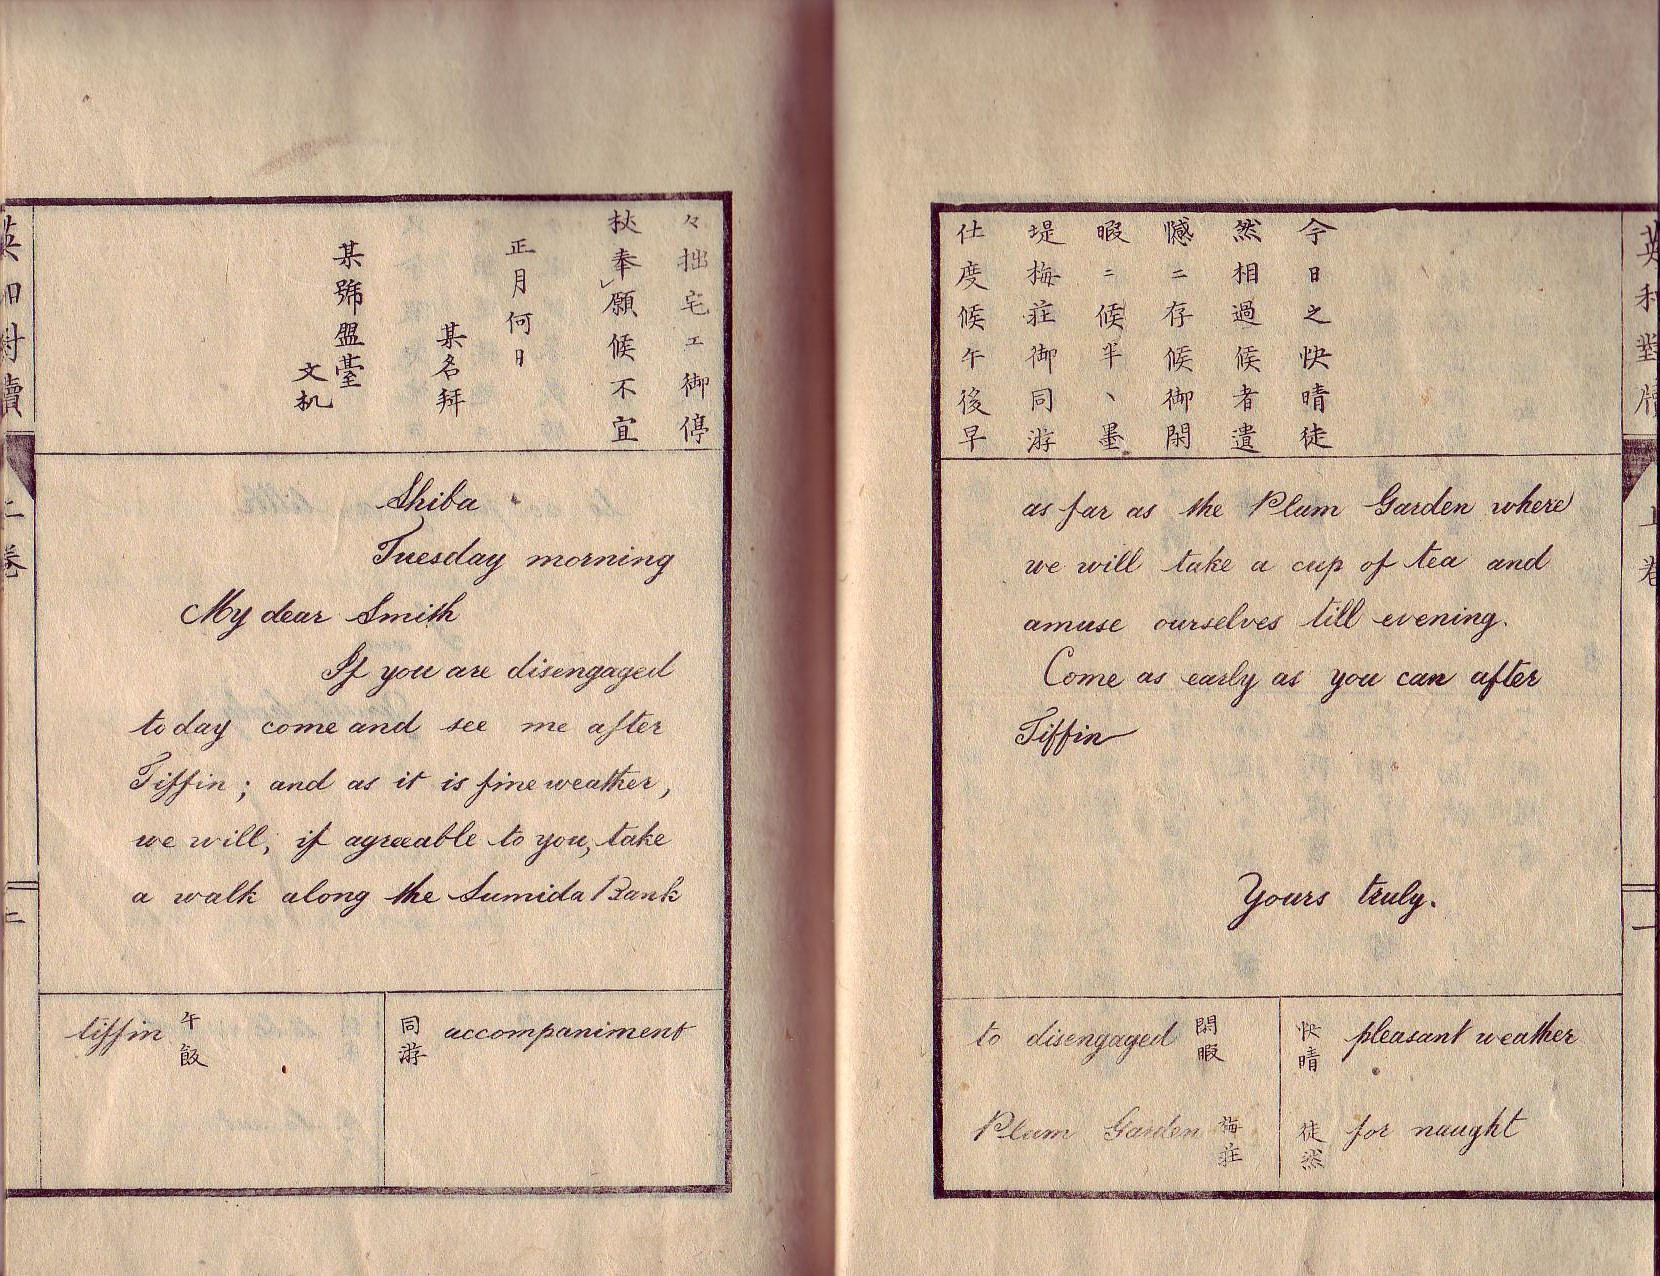 今日之快晴徒
然相過候者遺
憾ニ存候御閑
暇ニ候半ヽ墨
堤梅莊御同游
仕度候午後早
々拙宅エ御停
杖奉願候不宜
正月何日
某名拜
某號盟臺
文机
Shiba
Tuesday morning
My dear Smith
If you are disengaged
to day come and see me after
Tiffin; and as it is fine weather,
we will, if agreeable to you, take
a walk along the Sumida Bank
as far as the Plum Garden where
we will take a cup of tea and
amuse ourselves till evening.
Come as early as you can after
Tiffin
Yours truly.
快晴 pleasant weather
徒然 for naught
to disengaged 閑暇
Plum Garden 梅莊
同游 accompaniment
tiffin 午飯
英和對牘
上卷
一
英和對牘
上卷
二